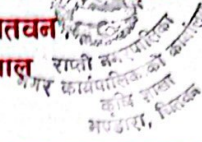 तवन
ाल
राप्ती नगरपालिका
नगर कार्यपालिकाको कार्यालय
कृषि शाखा
भण्डारा, चितवन